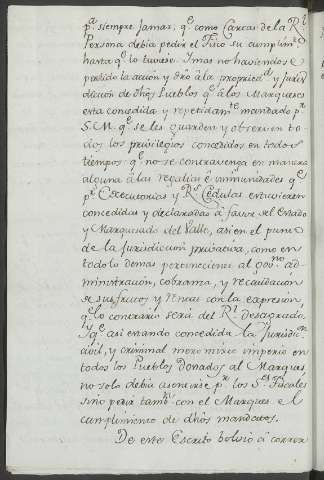 p.ª siempre jamas, q.e como Cargas de la R.l
Persona debia pedir el Fisco su cumplim.to
hasta q.e lo tuviese. Y mas no haviendose
perdido la accion y dro â la propried.d y Juris
diccion de dhôs Pueblos q.e â los Marqueses
esta concedida y repetidam.te mandado p.r
S. M. q.e se les guarden y observen to
dos los privilegios concedidos en todos
tiempos q.e no se contravenga en manera
alguna â las regalias è inmunidades q.e
p.r Executorias y R.s Cedulas estuvieren
concedidas y declaradas â favor del Estado
y Marquesado del Valle, asi en el punto
de la Jurisdiccion privativa, como en
todo lo demas perteneciente al gov.no ad-
ministracion, cobranza, y recaudacion
de sus frutos y rentas con la expresion
q.e lo contrario seria del R.l desagrado
Y q.e asi estando concedida la Jurisdic.n
civil, y criminal mero mixto imperio en
todos los Pueblos Donados al Marques,
no solo debia p.r los S.res Fiscales
sino pedir tamb.n con el Marques el
cumplimiento de dhôs mandatos.
De este Escrito bolbió â correr